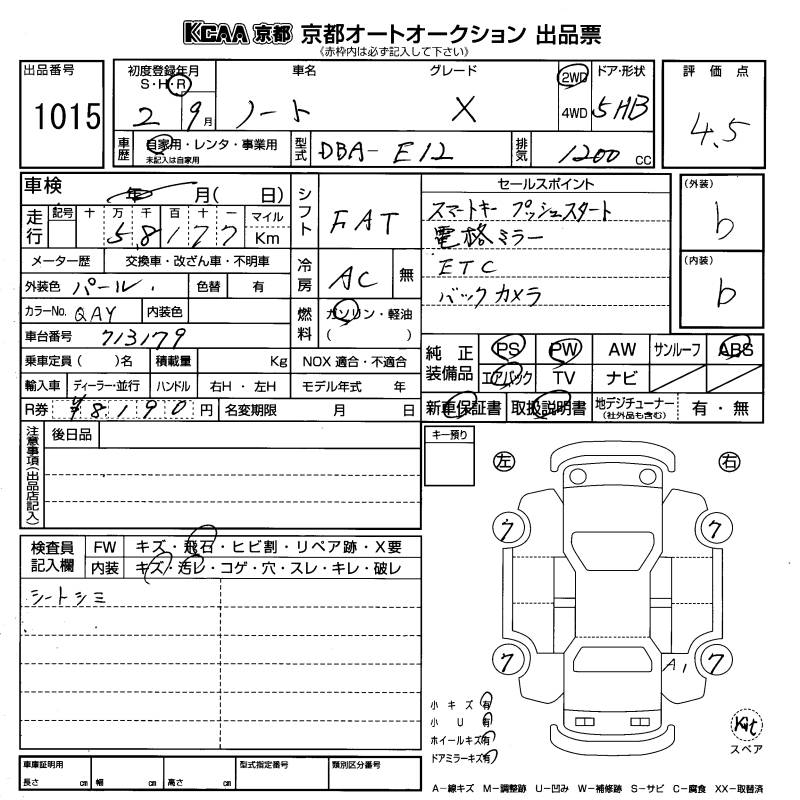 KCAA 京都 京都オートオークション 出品票
《赤枠内は必ず記入して下さい》
出品番号 1015
初度登録年月 S・H・R 2 9月
車名 ノート
グレード X
2WD 4WD
ドア・形状 5HB
評価点 4.5
車歴 自家用・レンタ・事業用 未記入は自家用
型式 DBA-E12
排気 1200 cc
車検 年 月( 日)
走行 記号 十 万 千 百 十 一 マイル Km
58177
シフト FAT
セールスポイント
スマートキー プッシュスタート
電格ミラー
ETC
バックカメラ
(外装) b
(内装) b
メーター歴 交換車・改ざん車・不明車
冷房 AC 無
外装色 パール 色替 有
カラーNo. QAY 内装色
燃料 ガソリン・軽油 ( )
車台番号 713179
乗車定員( )名 積載量 Kg NOX 適合・不適合
輸入車 ディーラー・並行 ハンドル 右H・左H モデル年式 年
R券 ¥8190円 名変期限 月 日
純正装備品 PS PW AW サンルーフ ABS
エアバック TV ナビ
新車保証書 取扱説明書 地デジチューナー (社外品も含む) 有・無
注意事項(出品店記入) 後日品
キー預り
左 右
7 7
検査員記入欄 FW キズ・飛石・ヒビ割・リペア跡・X要
内装 キズ・汚レ・コゲ・穴・スレ・キレ・破レ
シートシミ
7 A1 7
小キズ有
小U有
ホイールキズ有
ドアミラーキズ有
Kit
スペア
車庫証明用 長さ cm 幅 cm 高さ cm 型式指定番号 類別区分番号
A-線キズ M-調整跡 U-凹み W-補修跡 S-サビ C-腐食 XX-取替済